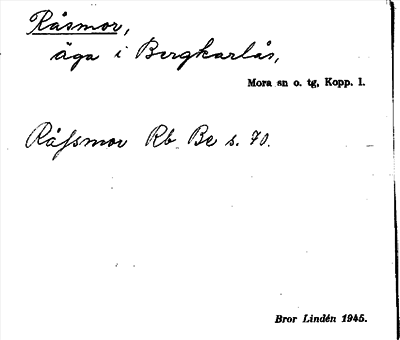 Råsmor,
äga i Bergkarlås,
Mora sn o. tg, Kopp. l.
Råfsmor Rb Be s. 70.
Bror Lindén 1945.